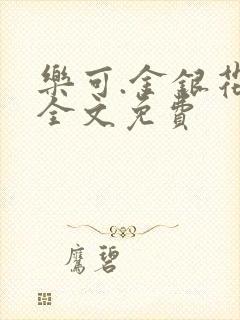 樂可.金銀花
全文免費
鷹碧